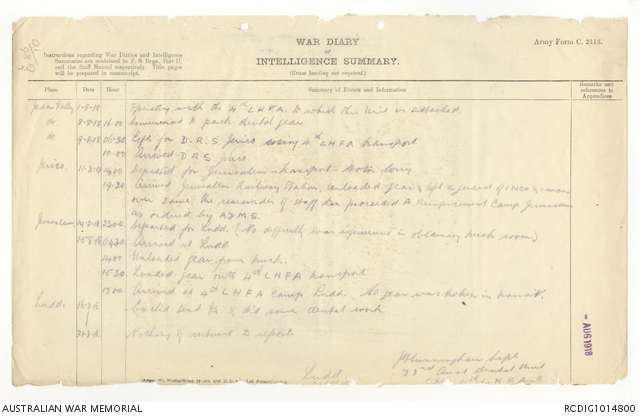 WAR DIARY
or
INTELLIGENCE SUMMARY.
(Erase heading not required.)
Army Form C. 2118.
Instructions regarding War Diaries and Intelligence
Summaries are contained in F. S. Regs., Part II.
and the Staff Manual respectively. Title pages
will be prepared in manuscript.
Place Date Hour Summary of Events and Information Remarks and
references to
Appendices
Jordan Valley 1-8-18 Operating with the 4th L.H.F.A. to which this Unit is attached.
do 8-8-18 16.00 Commenced to pack dental gear
do 9-8-18 06.30 Left for D.R.S. Jerico using 4th LHFA transport
10.00 Arrived D.R.S Jerico
Jerico 14.00 Departed for Jerusalem transport Motor lorry
19.30 Arrived Jerusalem Railway Station, Unloaded gear & left a guard of 1 NCO &
over same, the remainder of staff proceeded to Reinforcement Camp Jerusalem
as ordered by ADMS.
Jerusalem Departed for Ludd. (No difficulty was experienced in obtaining truck room)
Arrived at Ludd
14.00 Unloaded gear from truck.
15.30 Loaded gear onto 4th LHFA transport
Arrived at 4th LHFA Camp Ludd. No gear was broken in transit.
Ludd. & did some dental work
Nothing of interest to report
Ludd
J Cunningham Capt
Aust Dental Unit
- AUG 1918
AUSTRALIAN WAR MEMORIAL
RCDIG1014800